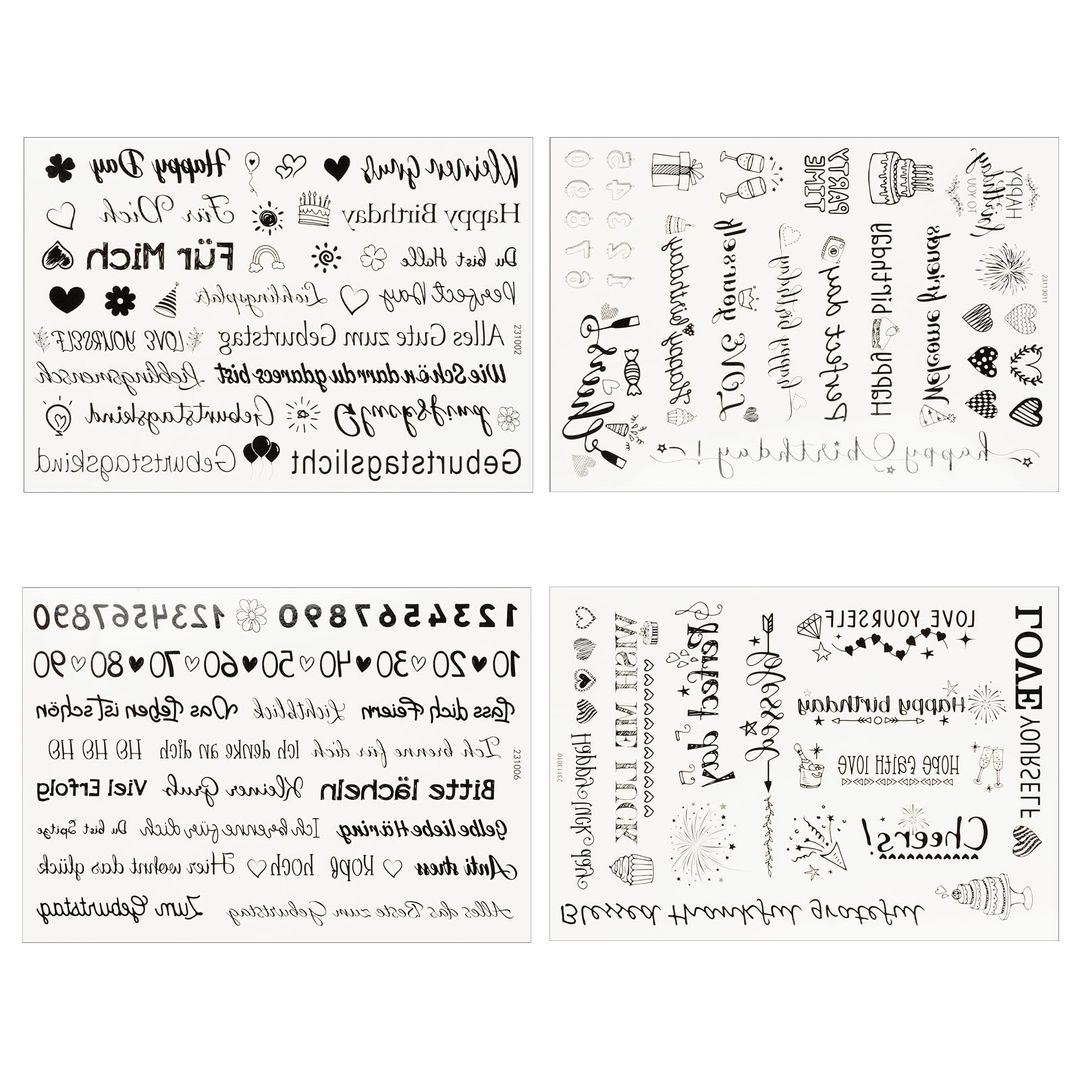 Kleinen Gruß Happy Day
Happy Birthday Für Dich
Du bist Halle Für Mich
Perfect Day Lieblingsplatz
Alles Gute zum Geburtstag LOVE YOURSELF
231002
Wie Schön darr du gdareces bist Lieblingsmensch
Geburtstagskind
Geburtstagslicht Geburtstagskind
HAPPY
Birthday
TO YOU
PARTY
TIME
5 0
4 6
3 8
2 7
1 9
23113011
Welcome friends
Happy birthday
Perfect day
happy birthday
LOVE yourself
Happy birthday
happy birthday!
1234567890 1234567890 1234567890
10 20 30 40 50 60 70 80 90
Lass dich Feiern Lichtblick Das Leben ist schön
Ich brenne für dich Ich denke an dich HO HO HO
231006
Bitte lächeln Kleiner Gruß Viel Erfolg
Gelbe liebe Häring Ich brenne für dich Du bist Spitze
Anti stress Hope hoch Hier wohnt das glück
Alles das Beste zum Geburtstag Zum Geburtstag
LOVE YOURSELF
LOVE YOURSELF
Happy birthday
HOPE FAITH LOVE
Cheers!
blessed
Perfect day
WISH ME LUCK
23113010
Blessed thankful grateful